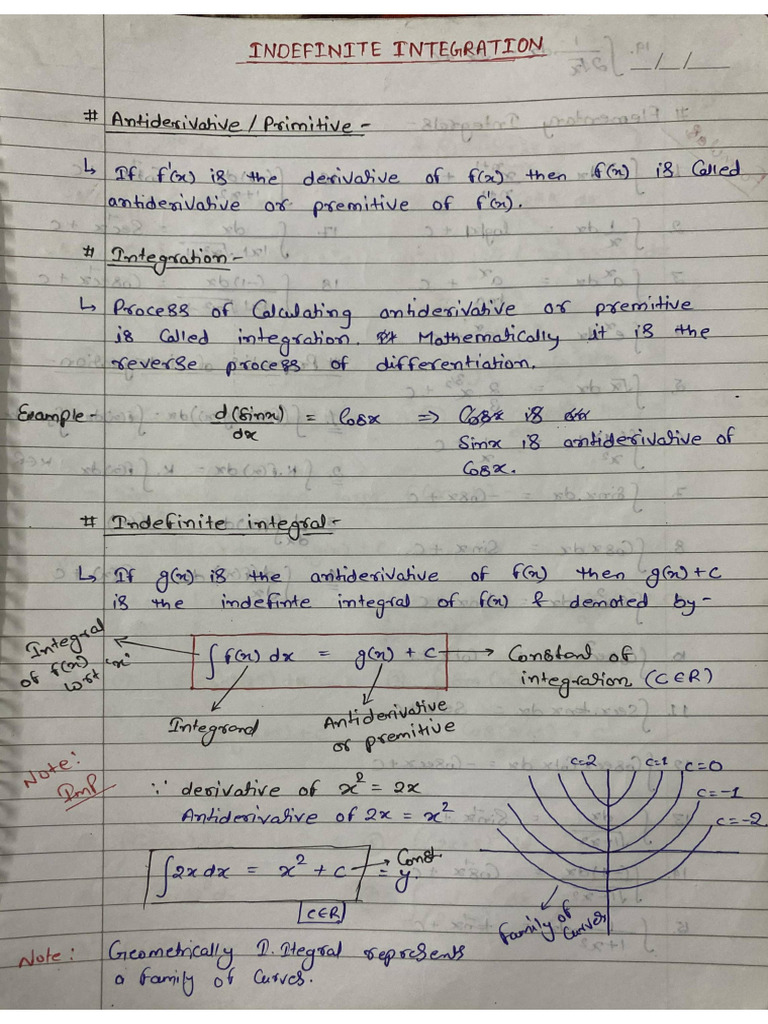 INDEFINITE INTEGRATION
_/_/_
# Antiderivative / Primitive -
↳ If f'(x) is the derivative of f(x) then f(x) is Called
antiderivative or premitive of f'(x).
# Integration -
↳ Process of Calculating antiderivative or premitive
is Called integration. Mathematically it is the
reverse process of differentiation.
Example - d(Sinx)/dx = Cosx ⇒ Cosx is
Sinx is antiderivative of
Cosx.
# Indefinite integral -
↳ If g(x) is the antiderivative of f(x) then g(x) + c
is the indefinte integral of f(x) & demoted by -
Integral
of f(x)
wrt 'x'
∫ f(x) dx = g(x) + c → Constant of
integration (C∈R)
Integrand
Antiderivative
or premitive
Note:
Imp
∵ derivative of x² = 2x
Antiderivative of 2x = x²
∫2x dx = x² + c = y
Const.
C∈R
c=2 c=1 c=0
c=-1
c=-2
Family of
Curves
Note: Geometrically I. Itegral represents
a family of Curves.